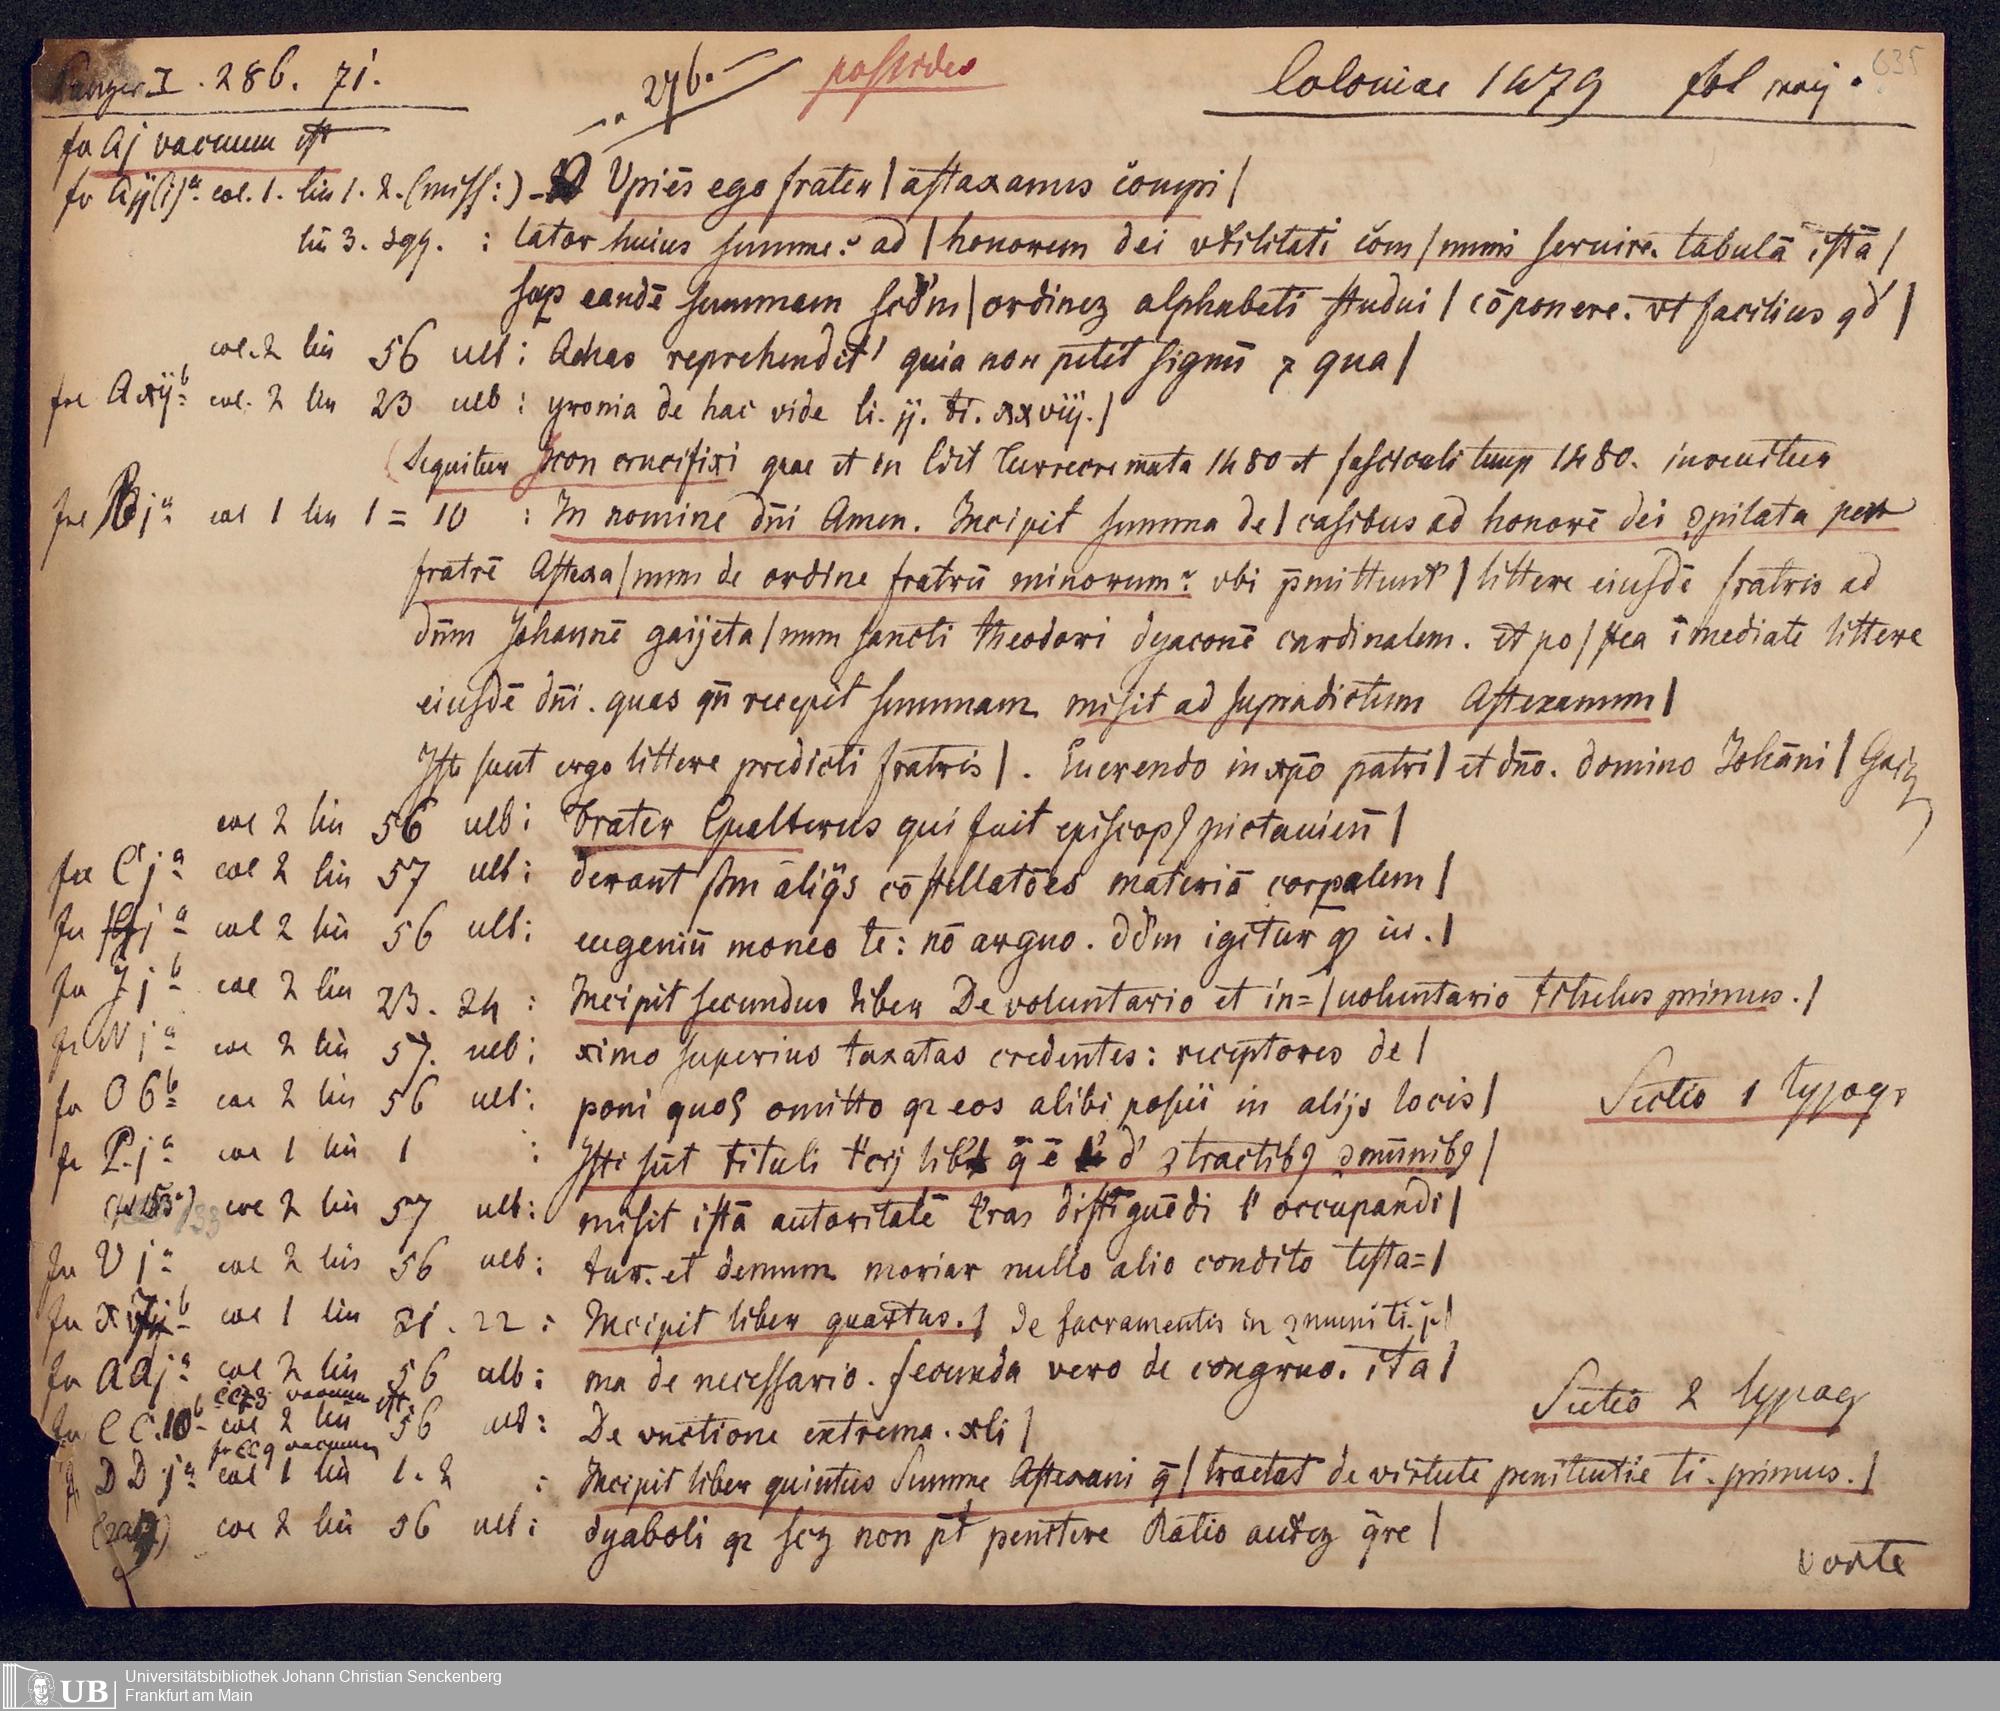 Panzer I. 286. 71.
276.
possides
Coloniae 1479 fol maij.
635
fo Aj vacuum est
fo Aij(i)a col. 1. lin 1. 2. (miss:) Upiēs ego frater | astaxanus compi |
lin 3. sqq. : lator huius summe: ad | honorem dei vtilitati com | munis seruire. tabulā istā |
sup eandē summam scd'm | ordinez alphabeti studui | cōponere. vt facilius qd' |
col. 2 lin 56 ult: Achas reprehendit' quia non petit signū 7 qua |
fol A xijb col. 2 lin 23 ult: yronia de hac vide li. ij. ti. xxviij. |
(Sequitur Icon crucifixi quae et in Edit Turrecremata 1480 et fasciculi temp 1480. invenitur
fol Bja col 1 lin 1 = 10 : In nomine dn̄i Amen. Incipit summa de | casibus ad honorē dei ɔpilata per
fratrē Astexa | num de ordine fratrū minorum: vbi p̄mittunt' | littere eiusdē fratris ad
dn̄m Johannē gaijeta | num sancti theodori dyaconē cardinalem. et po | stea īmediate littere
eiusdē dn̄i. quas qn̄ recepit summam misit ad supradictum Astexanum |
Iste sunt ergo littere predicti fratris |. Euerendo in xp̄o patri | et dn̄o. domino Johāni | Gaiz
col 2 lin 56 ult: Frater Gualterus qui fuit episcop9 pictauien̄ |
fol Cja col 2 lin 57 ult: derant sm āliq̄s cōstellatōes materiā corpalem |
col 2 lin 56 ult: eugeniū moneo te: nō arguo. dd'm igitur in. |
fo Ijb col 2 lin 23. 24 : Incipit secundus liber De voluntario et in= | uoluntario titulus primus. |
fo Nja col 2 lin 57. ult: ximo superius taxatas credentes: receptores de |
fo O6b col 2 lin 56 ult: poni quos omitto qr eos alibi posui in alijs locis |
Sectio 1 typogr
fo Pja col 1 lin 1 : Isti sūt tituli t'cij lib' q̄ ē d' ɔtractib9 ɔmūnib9 |
col 2 lin 57 ult: misit istā autoritatē t'ras distīguēdi l' occupandi |
fo Vja col 2 lin 56 ult: tur. et demum moriar nullo alio condito testa= |
col 1 lin 21. 22 : Incipit liber quartus. | de sacramentis in ɔmuni ti. j |
fo AAja col 2 lin 56 ult: ma de necessario. secunda vero de congruo. ita |
vacuum est.
fo CC.10b col 2 lin 56 ult: De vnctione extrema. xli |
Sectio 2 typogr
fo CC9 vacuum
fo DDja col 1 lin 1. 2 : Incipit liber quintus Summe Astexani q̄ | tractat de virtute penitentie ti. primus. |
col 2 lin 56 ult: dyaboli qr scz non pt penitere Ratio autez q̄re |
verte
UB Universitätsbibliothek Johann Christian Senckenberg
Frankfurt am Main